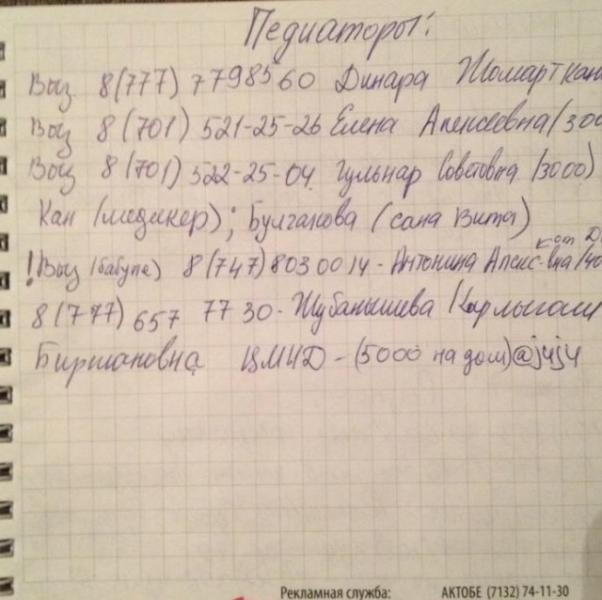 Педиаторы:
Выз 8(777) 7798560 Динара Жомарткан
Выз 8(701) 521-25-26 Елена Алексеевна (300
Выз 8(701) 522-25-04 Гульнар Советовна (3000)
Кан (медикер); Булгакова (сана Вита)
!Выз (бабуле) 8(747)8030014 - Антонина Алекс-вна
8(777) 657 77 30 - Жубанышева Карлыгаш
Биржановна ЦМЧД - (5000 на дом)@j4j4
Рекламная служба: АКТОБЕ (7132) 74-11-30